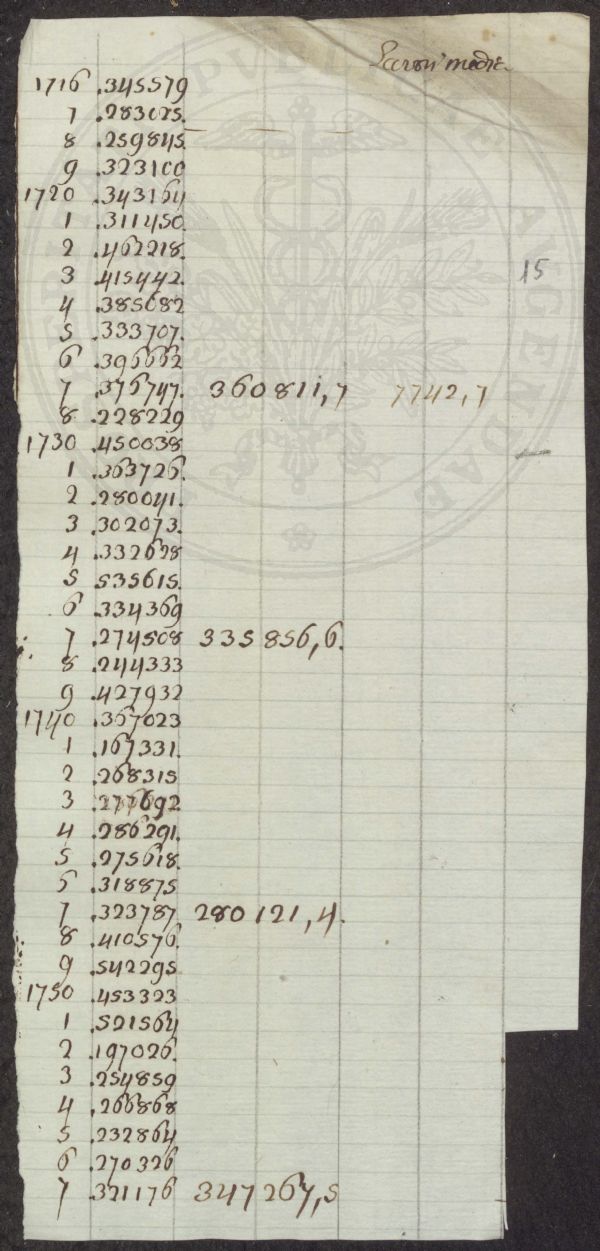 1716 .345579
7 .283025.
8 .259845.
9 .323100
1720 .343164
1 .311450.
2 .462218.
3 .415442. 15
4 .385682
5 .333707.
6 .396662
7 .376747. 360811,7 7742,7
8 .228229
1730 .450038
1 .363726.
2 .280041.
3 .302073.
4 .332628
5 535615.
6 .334369
7 .274508 335856,6.
8 .244333
9 .427932
1740 .367023
1 .167331.
2 .268315
3 .277692
4 .286291.
5 .275618.
6 .318875
7 .323787 280121,4.
8 .410576.
9 .542295
1750 .453323
1 .521564
2 .197026.
3 .254859
4 .266868
5 .232864
6 .270326
7 .321176 347267,5